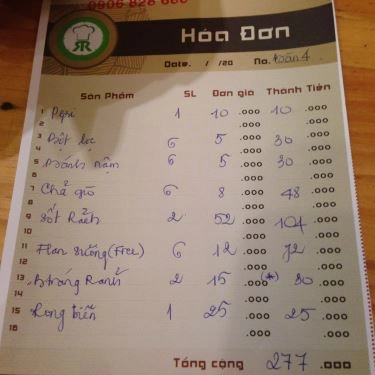 0906 828 680
Hóa Đơn
Date. / /20 No. Bàn 4
Sản Phẩm SL Đơn giá Thành Tiền
1 Pepsi 1 10 .000 10 .000
2 .000 .000
3 Bột lọc 6 5 .000 30 .000
4 .000 .000
5 Bánh nậm 6 5 .000 30 .000
6 .000 .000
7 Chả giò 6 8 .000 48 .000
8 .000 .000
9 2 52 .000 104 .000
10 .000 .000
11 Flan (Free) 6 12 .000 72 .000
12 .000 .000
13 2 15 .000 30 .000
14 .000 .000
15 Rong biển 1 25 .000 25 .000
16 .000 .000
Tổng cộng 277 .000